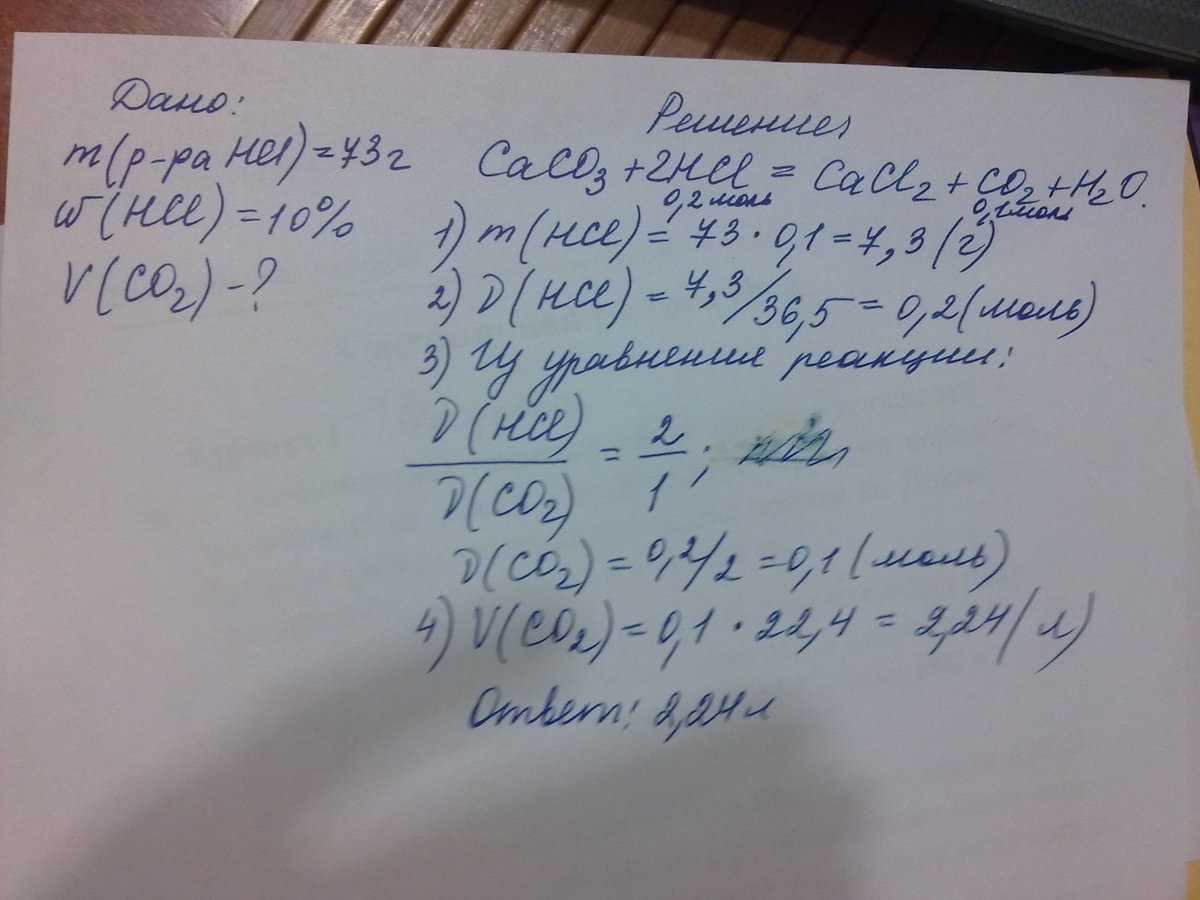 Дано:
m(р-ра HCl)=73г
ω(HCl)=10%
V(CO₂)-?
Решение,
CaCO₃+2HCl=CaCl₂+CO₂+H₂O.
0,2 моль 0,1 моль
1) m(HCl)=73·0,1=7,3(г)
2) ν(HCl)=7,3/36,5=0,2(моль)
3) Из уравнения реакции:
ν(HCl)/ν(CO₂)=2/1;
ν(CO₂)=0,2/2=0,1(моль)
4) V(CO₂)=0,1·22,4=2,24(л)
Ответ: 2,24л